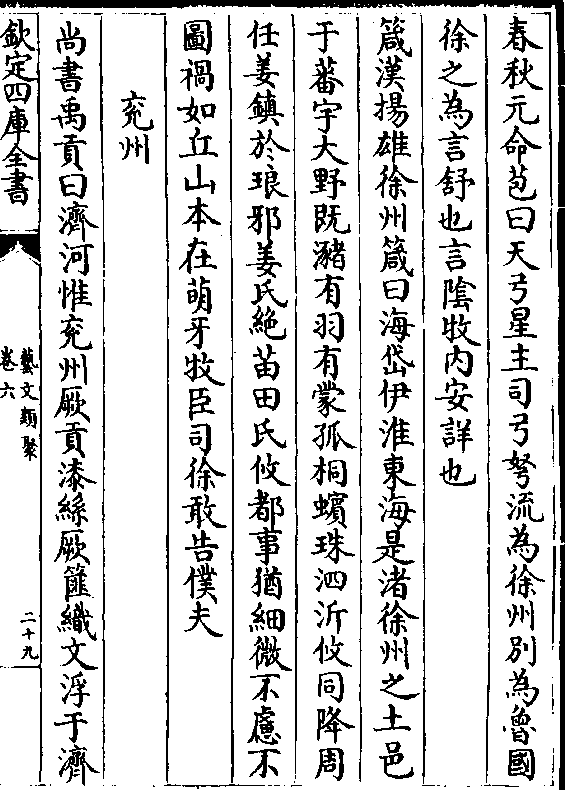 春秋元命苞曰天弓星主司弓弩流為徐州別為魯國
徐之為言舒也言隂牧内安詳也
箴漢揚雄徐州箴曰海岱伊淮東海是渚徐州之土邑
于蕃宇大野既瀦有羽有蒙孤桐蠙珠泗沂攸同降周
任姜鎮於琅邪姜氏絶苖田氏攸都事猶細微不慮不
圖禍如丘山本在萌牙牧臣司徐敢告僕夫
兖州
尚書禹貢曰濟河惟兖州厥貢漆絲厥篚織文浮于濟
欽定四庫全書
藝文類聚
卷六
二十九